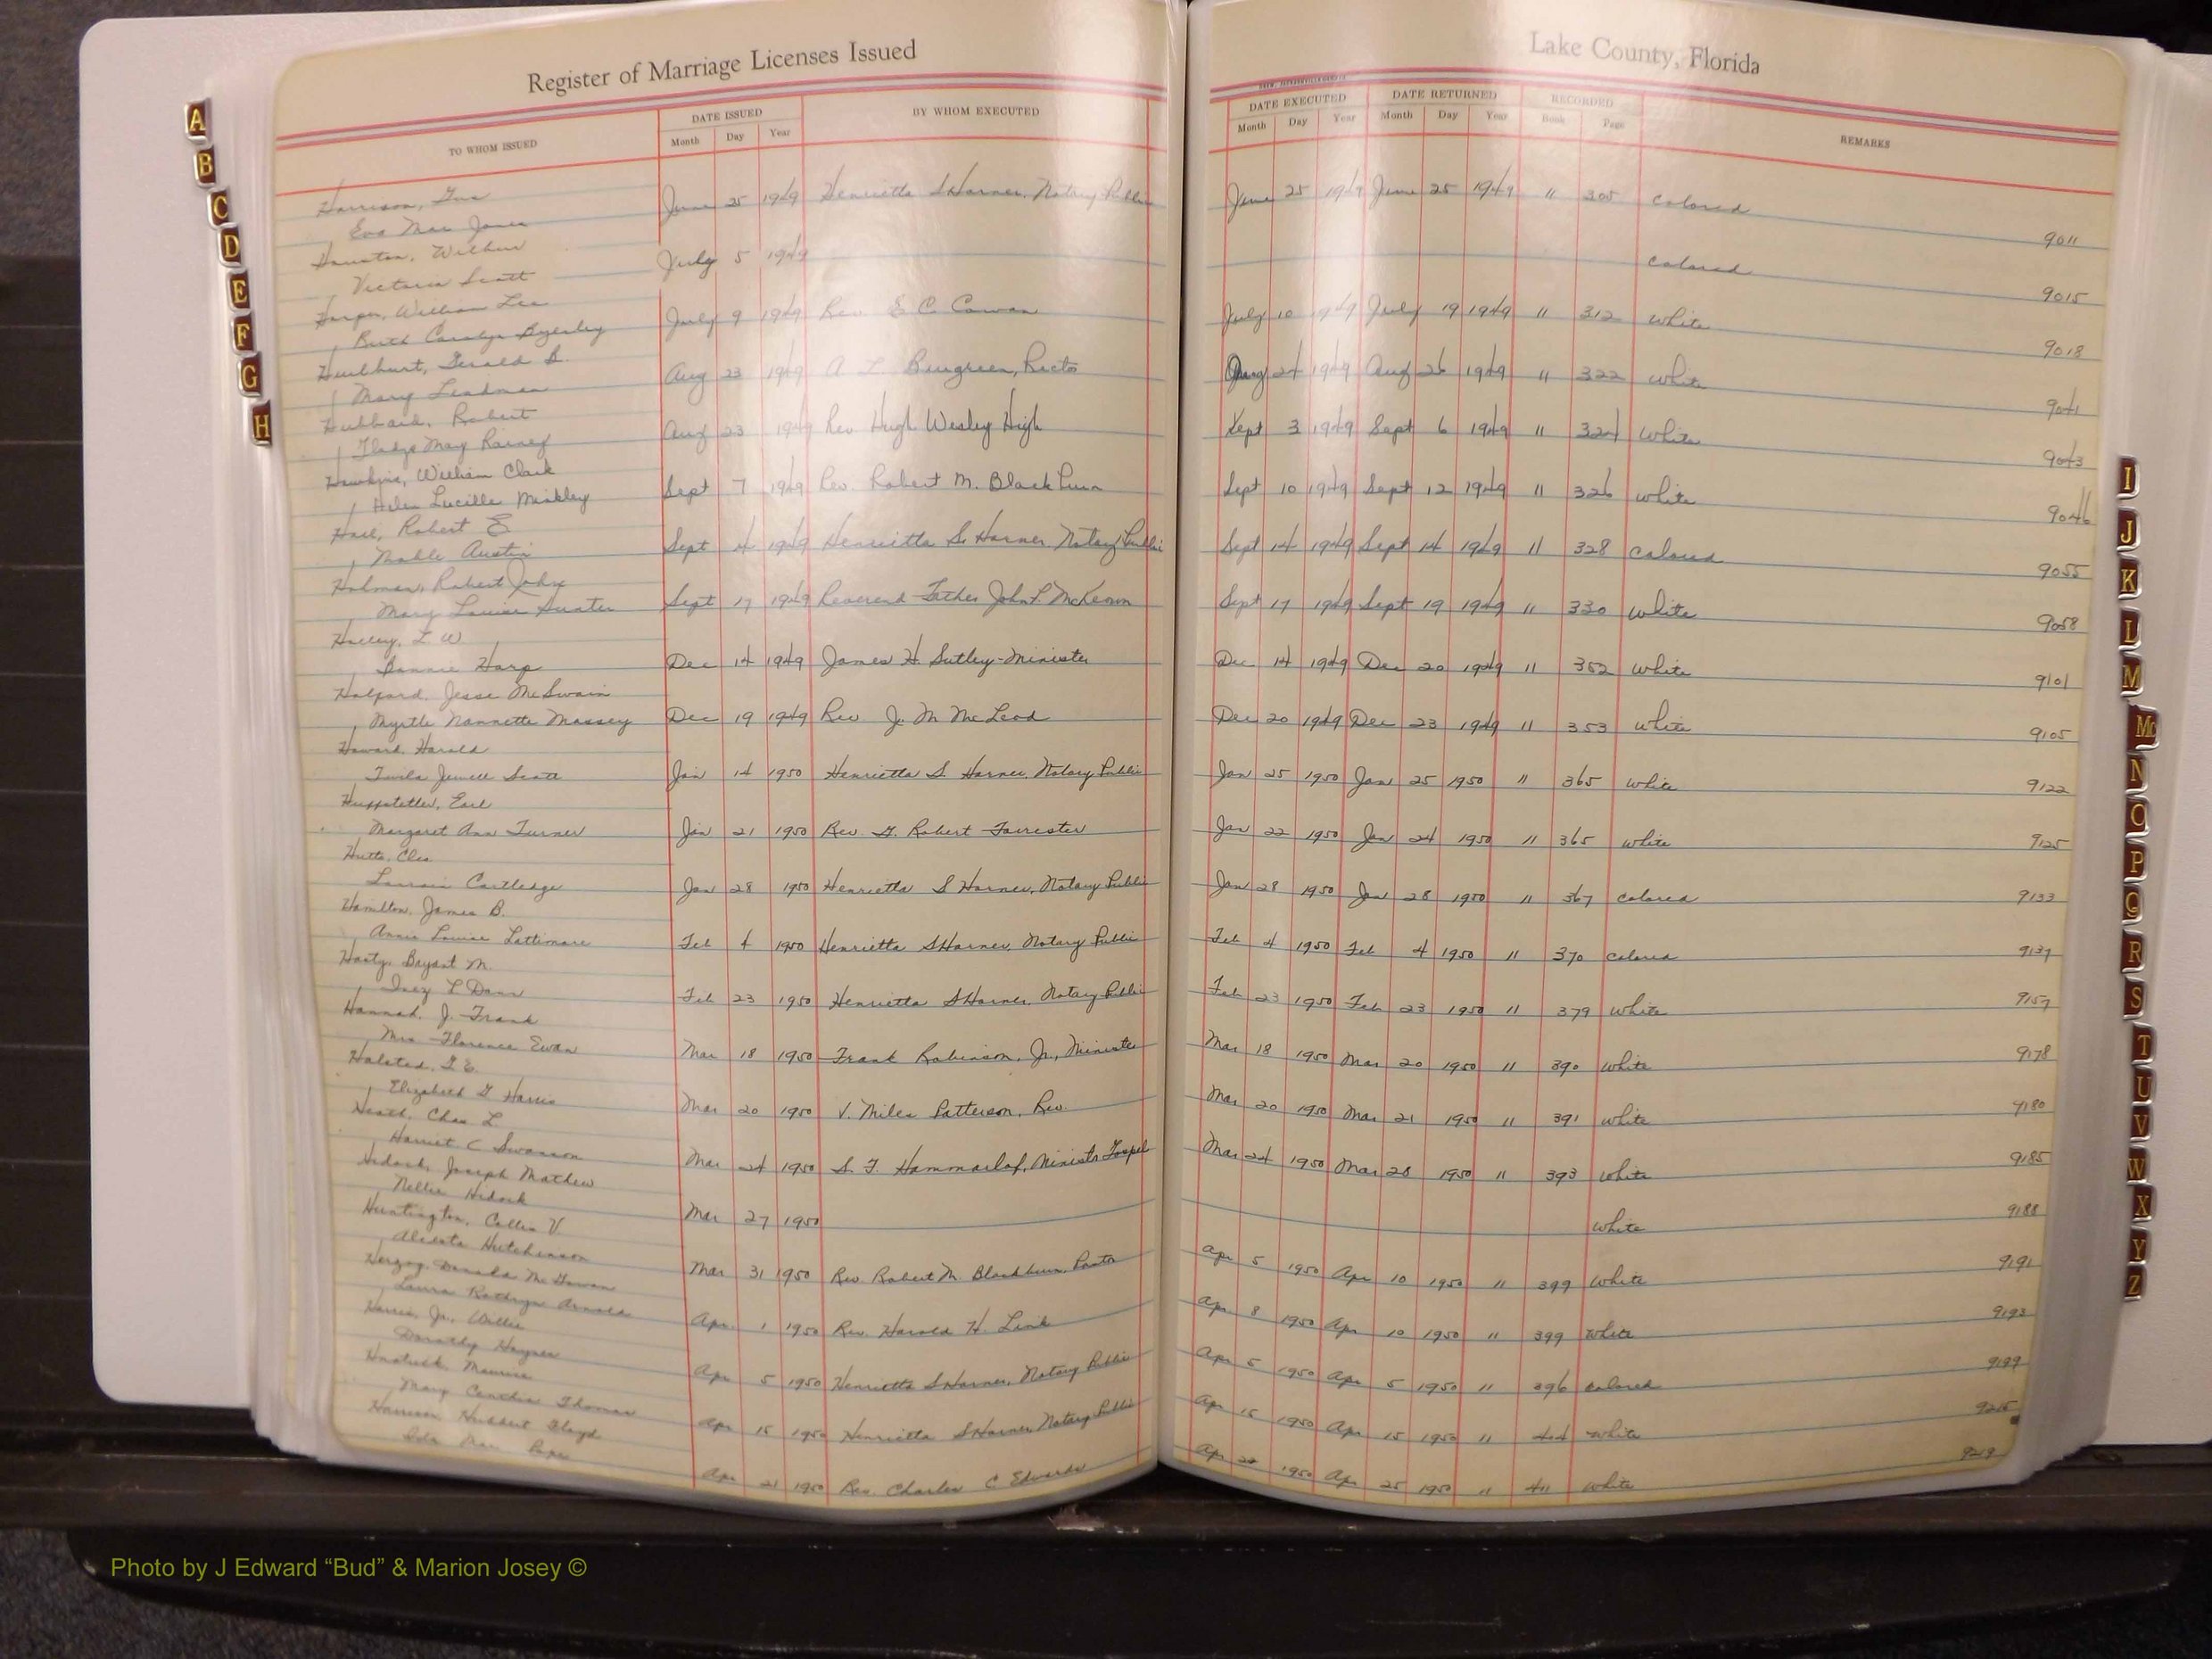 Register of Marriage Licenses Issued
Lake County, Florida
TO WHOM ISSUED
DATE ISSUED
Month Day Year
BY WHOM EXECUTED
DATE EXECUTED
Month Day Year
DATE RETURNED
Month Day Year
RECORDED
Book Page
REMARKS
Harrison, Gus
Eva Mae Jones
June 25 1949 Henrietta S Harner, Notary Public June 25 1949 June 25 1949 11 305 colored 9011
Houston, Wilbur
Victoria Scott
July 5 1949 colored 9015
Harper, William Lee
Ruth Carolyn Byerley
July 9 1949 Rev E C Cowan July 10 1949 July 19 1949 11 312 White 9018
Hurlburt, Gerald B.
Mary
Aug 23 1949 A L Burgreen, Rector Aug 24 1949 Aug 26 1949 11 322 White 9041
Hubbard, Robert
Gladys May Rainey
Aug 23 1949 Rev Hugh Wesley High Sept 3 1949 Sept 6 1949 11 324 White 9043
Hawkins, William Clark
Helen Lucille
Sept 7 1949 Rev. Robert M. Blackburn Sept 10 1949 Sept 12 1949 11 326 White 9046
Robert E
Austin
Sept 14 1949 Henrietta S. Harner Notary Public Sept 14 1949 Sept 14 1949 11 328 Colored 9055
Holman, Robert John
Mary Louise Hunter
Sept 17 1949 Reverend Father John P. McKeown Sept 17 1949 Sept 19 1949 11 330 White 9058
W
Bonnie Harp
Dec 14 1949 James H. Sutley-Minister Dec 14 1949 Dec 20 1949 11 352 White 9101
Halford, Jesse McSwain
Myrtle Nannette Massey
Dec 19 1949 Rev J. M McLeod Dec 20 1949 Dec 23 1949 11 353 White 9105
Howard, Harold
Twila Jewell Scott
Jan 14 1950 Henrietta S. Harner, Notary Public Jan 25 1950 Jan 25 1950 11 365 White 9122
Huffstetler, Earl
Margaret Ann Turner
Jan 21 1950 Rev. G. Robert Forrester Jan 22 1950 Jan 24 1950 11 365 White 9125
Cleo
Cartledge
Jan 28 1950 Henrietta S Harner, Notary Public Jan 28 1950 Jan 28 1950 11 367 colored 9133
Hamilton, James B.
Annie Louise Lattimore
Feb 4 1950 Henrietta S Harner, Notary Public Feb 4 1950 Feb 4 1950 11 370 colored 9137
Hasty, Bryant M.
Inez L Dann
Feb 23 1950 Henrietta S Harner, Notary Public Feb 23 1950 Feb 23 1950 11 379 White 9157
Hannah, J. Frank
Mrs Florence Ewan
Mar 18 1950 Frank Robinson, Jr., Minister Mar 18 1950 Mar 20 1950 11 390 White 9178
Halsted, E.
Elizabeth G Harris
Mar 20 1950 V. Miles Patterson, Rev. Mar 20 1950 Mar 21 1950 11 391 White 9180
Heath, Chas L.
Harriet C Swanson
Mar 24 1950 S. F. Hammarlof, Minister Gospel Mar 24 1950 Mar 28 1950 11 393 White 9185
Hidock, Joseph Mathew
Nellie Hidock
Mar 27 1950 White 9188
Huntington, Collis V.
Hutchinson
Mar 31 1950 Rev Robert M. Blackburn, Pastor Apr 5 1950 Apr 10 1950 11 399 White 9191
Herzog, Donald McGowan
Laura Kathryn Arnold
Apr. 1 1950 Rev. Harold H. Link Apr 8 1950 Apr 10 1950 11 399 White 9193
Harris, Jr., Willie
Dorothy Haynes
Apr 5 1950 Henrietta S Harner, Notary Public Apr 5 1950 Apr 5 1950 11 396 colored 9199
Maurice
Mary Thomas
Apr 15 1950 Henrietta S Harner, Notary Public Apr 15 1950 Apr 15 1950 11 404 White 9215
Harrison Hubbert Floyd
Ida Mae Pope
Apr 21 1950 Rev. Charles C Edwards Apr 22 1950 Apr 25 1950 11 411 White 9219
A
B
C
D
E
F
G
H
I
J
K
L
M
Mc
N
O
P
Q
R
S
T
U
V
W
X
Y
Z
Photo by J Edward “Bud” & Marion Josey ©